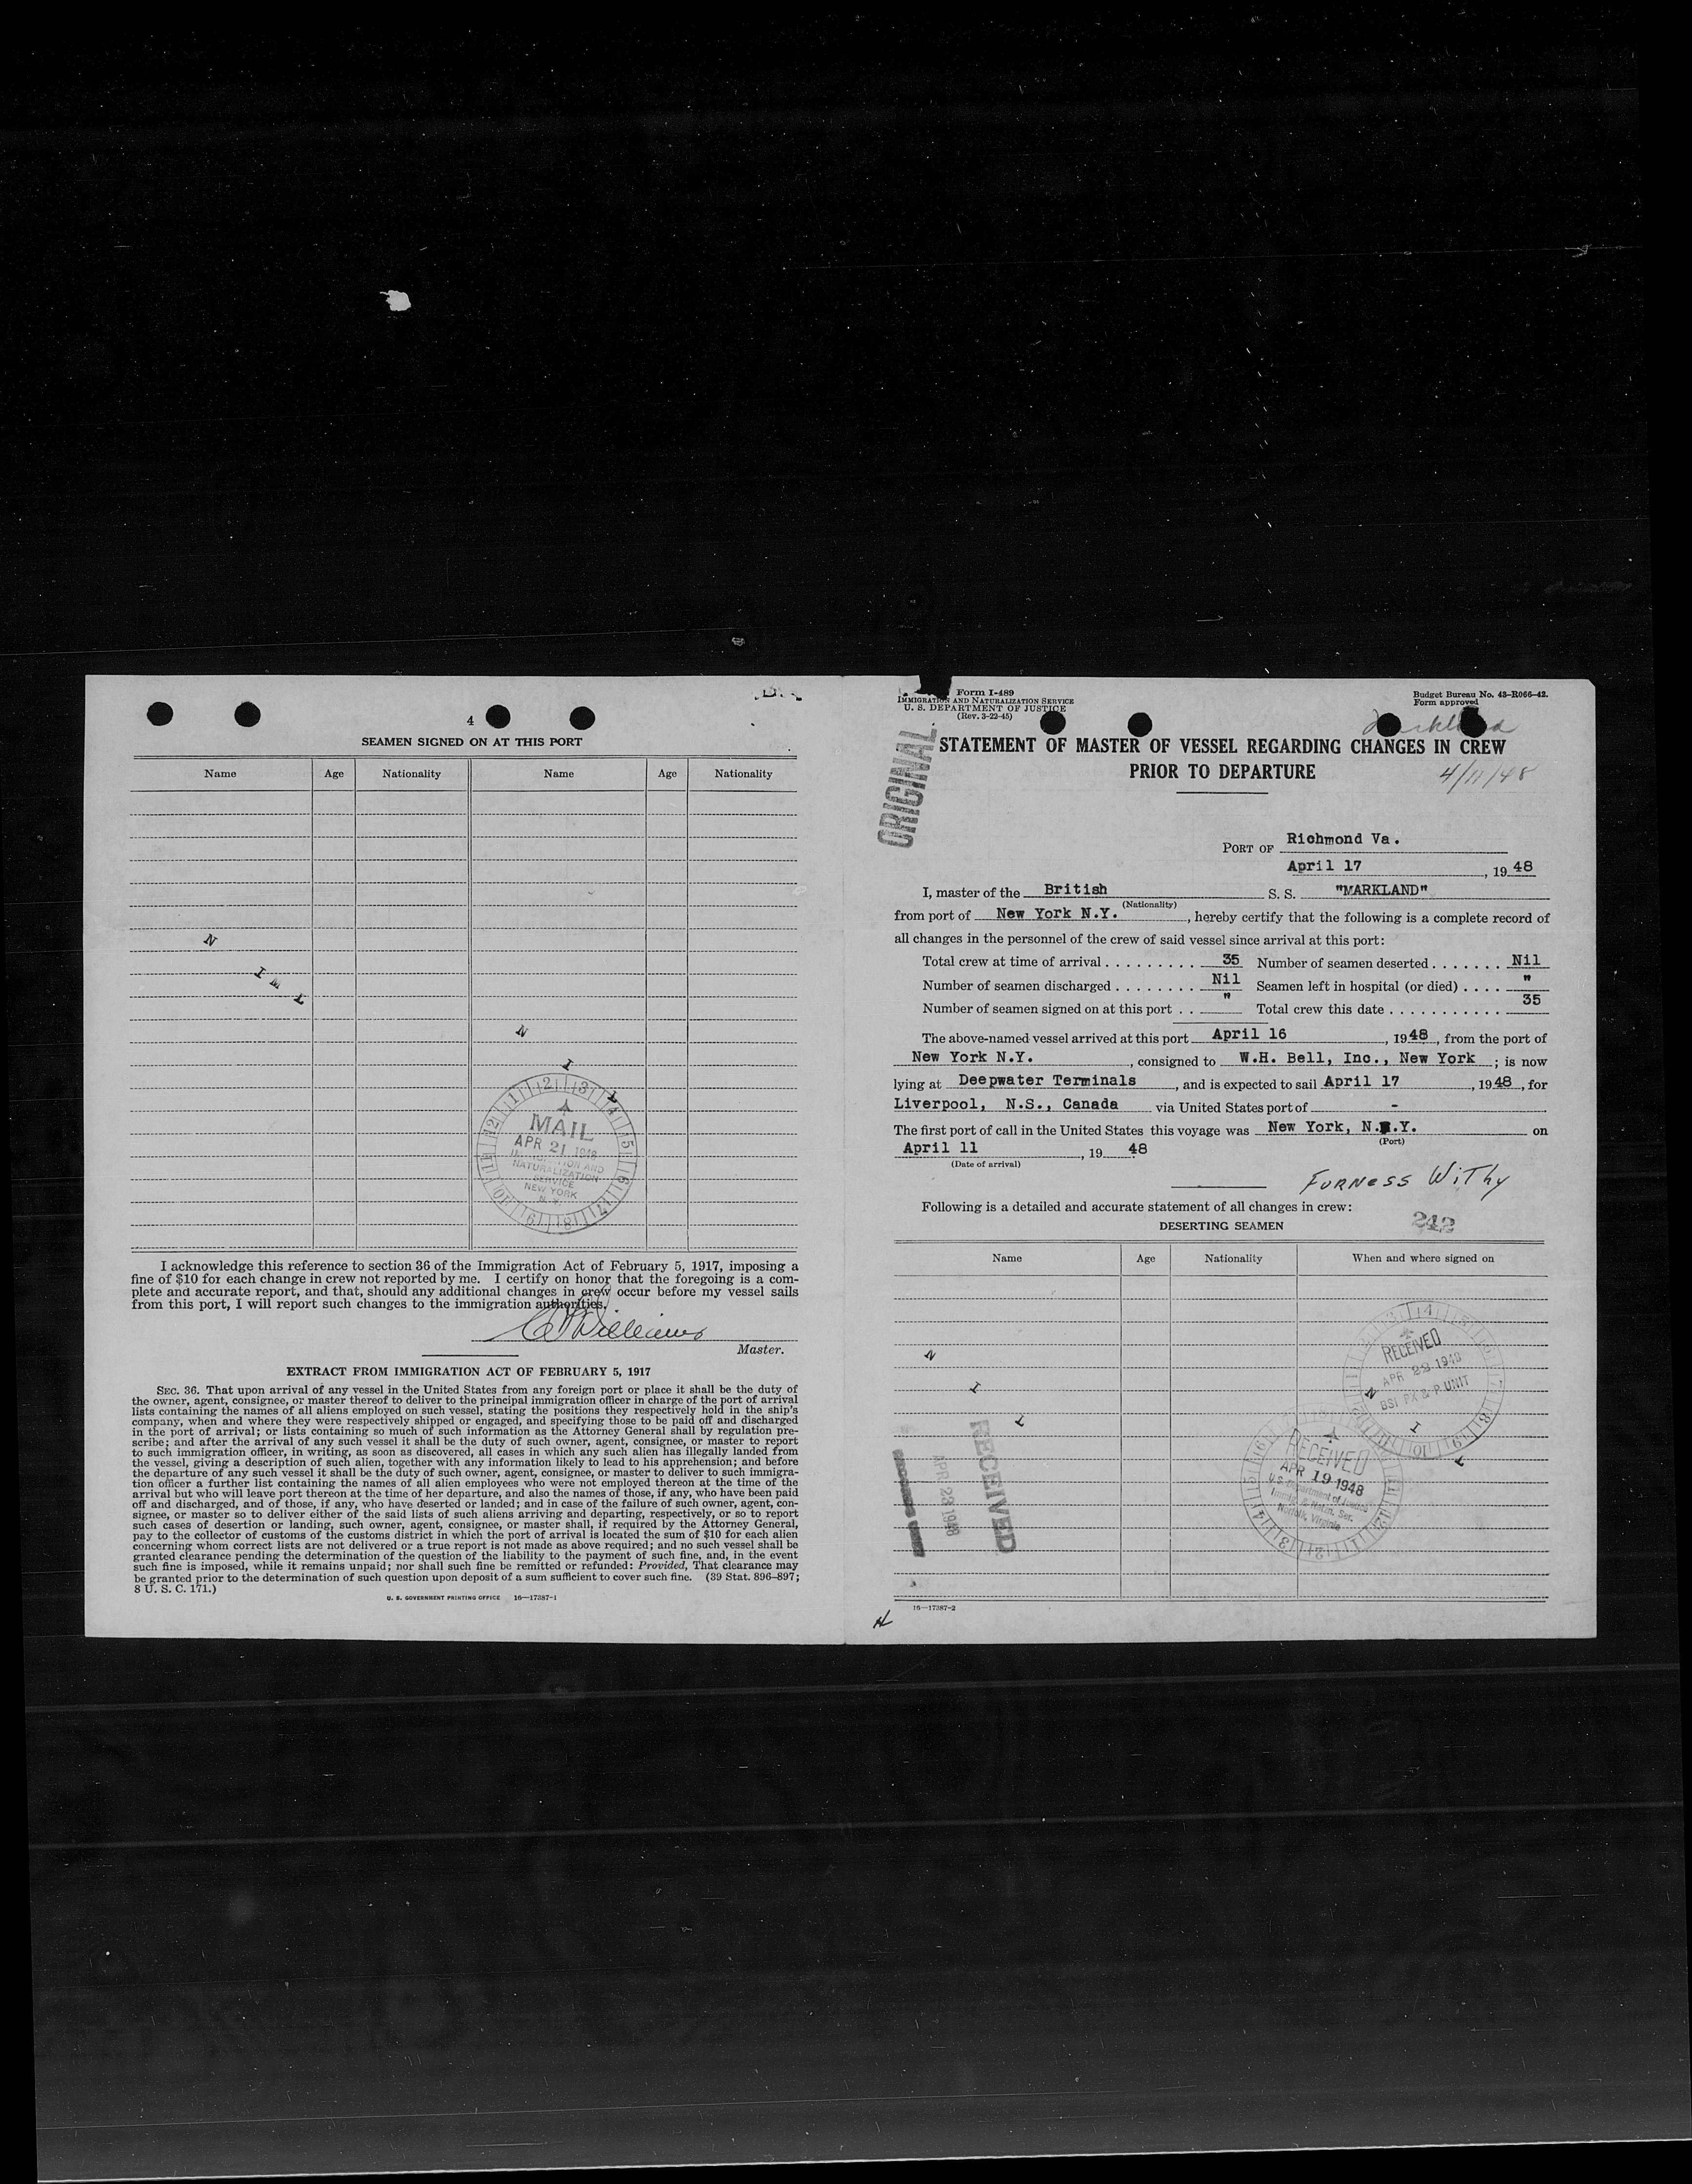 4
SEAMEN SIGNED ON AT THIS PORT
Name Age Nationality Name Age Nationality
N
I
L
N
I
L
MAIL
APR 21 1948
IMMIGRATION AND
NATURALIZATION
SERVICE
NEW YORK
N. Y.
I acknowledge this reference to section 36 of the Immigration Act of February 5, 1917, imposing a
fine of $10 for each change in crew not reported by me. I certify on honor that the foregoing is a com-
plete and accurate report, and that, should any additional changes in crew occur before my vessel sails
from this port, I will report such changes to the immigration authorities.
Williams
Master.
EXTRACT FROM IMMIGRATION ACT OF FEBRUARY 5, 1917
SEC. 36. That upon arrival of any vessel in the United States from any foreign port or place it shall be the duty of
the owner, agent, consignee, or master thereof to deliver to the principal immigration officer in charge of the port of arrival
lists containing the names of all aliens employed on such vessel, stating the positions they respectively hold in the ship's
company, when and where they were respectively shipped or engaged, and specifying those to be paid off and discharged
in the port of arrival; or lists containing so much of such information as the Attorney General shall by regulation pre-
scribe; and after the arrival of any such vessel it shall be the duty of such owner, agent, consignee, or master to report
to such immigration officer, in writing, as soon as discovered, all cases in which any such alien has illegally landed from
the vessel, giving a description of such alien, together with any information likely to lead to his apprehension; and before
the departure of any such vessel it shall be the duty of such owner, agent, consignee, or master to deliver to such immigra-
tion officer a further list containing the names of all alien employees who were not employed thereon at the time of the
arrival but who will leave port thereon at the time of her departure, and also the names of those, if any, who have been paid
off and discharged, and of those, if any, who have deserted or landed; and in case of the failure of such owner, agent, con-
signee, or master so to deliver either of the said lists of such aliens arriving and departing, respectively, or so to report
such cases of desertion or landing, such owner, agent, consignee, or master shall, if required by the Attorney General,
pay to the collector of customs of the customs district in which the port of arrival is located the sum of $10 for each alien
concerning whom correct lists are not delivered or a true report is not made as above required; and no such vessel shall be
granted clearance pending the determination of the question of the liability to the payment of such fine, and, in the event
such fine is imposed, while it remains unpaid; nor shall such fine be remitted or refunded: Provided, That clearance may
be granted prior to the determination of such question upon deposit of a sum sufficient to cover such fine. (39 Stat. 896–897;
8 U. S. C. 171.)
U. S. GOVERNMENT PRINTING OFFICE 16—17387-1
Form I-489
IMMIGRATION AND NATURALIZATION SERVICE
U. S. DEPARTMENT OF JUSTICE
(Rev. 3-22-45)
Budget Bureau No. 43-R066-42.
Form approved
Markland
ORIGINAL
STATEMENT OF MASTER OF VESSEL REGARDING CHANGES IN CREW
PRIOR TO DEPARTURE
4/11/48
PORT OF Richmond Va.
April 17, 19 48
I, master of the British S. S. "MARKLAND"
(Nationality)
from port of New York N.Y., hereby certify that the following is a complete record of
all changes in the personnel of the crew of said vessel since arrival at this port:
Total crew at time of arrival . . . . . . . . . 35 Number of seamen deserted . . . . . . . Nil
Number of seamen discharged . . . . . . . . Nil Seamen left in hospital (or died) . . . . "
Number of seamen signed on at this port . . " Total crew this date . . . . . . . . . . . 35
The above-named vessel arrived at this port April 16, 1948, from the port of
New York N.Y., consigned to W.H. Bell, Inc., New York; is now
lying at Deepwater Terminals, and is expected to sail April 17, 1948, for
Liverpool, N.S., Canada via United States port of -
The first port of call in the United States this voyage was New York, N.Y. on
(Port)
April 11, 19 48
(Date of arrival)
FURNESS WITHY
Following is a detailed and accurate statement of all changes in crew:
242
DESERTING SEAMEN
Name Age Nationality When and where signed on
N
I
L
N
I
L
RECEIVED
APR 23 1948
BSI PX & P UNIT
RECEIVED
APR 19 1948
U.S. Department of Justice
Immig. & Natzn. Ser.
Norfolk, Virginia
RECEIVED
APR 23 1948
16—17387-2